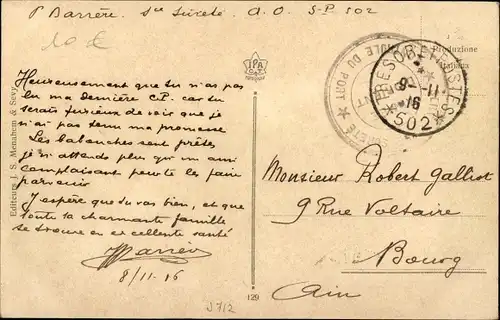 P Barrère. Sce Sureté. A.O. S.P. 502
10 €
Heureusement que tu n'as pas
lu ma dernière C.P. car tu
serais furieux de voir que
je n'ai pas tenu ma promesse
Les babouches sont prêtes
je n'attends plus qu'un ami
complaisant pour te le faire
parvenir
J'espère que tu vas bien, et que
toute ta charmante famille
se trouve en excellente santé
PBarrère
8/11-16
Editeurs J. S. Menahem & Sevy
IPA CT
TRESOR ET POSTES
8-11-16
* 502 *
DU PORT
SURETÉ
Produzione
Italiana
Monsieur Robert Galliot
9 Rue Voltaire
Bourg
Ain
129
J712